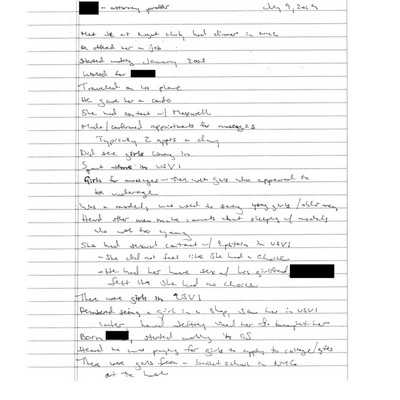 - attorney proffer July 9, 2019
Met JE at night club, had dinner in NYC
He offered her a job
Started working January 2001
Worked for
Traveled on his plane
He gave her a condo
She had contact w/ Maxwell
Made/confirmed appointments for massages
Typically 2 appts a day
Did see girls coming in
Spent time in USVI
Girls for massages - there were girls who appeared to
be underage
Was a model, was used to seeing young girls / older men
Heard other men make comments about sleeping w/ models
who were too young
She had sexual contact w/ Epstein in USVI
- She did not feel like she had a choice
- He had her have sex w/ his girlfriend
felt like she had no choice
There were girls in USVI
Remembered seeing a girl in a shop, saw her in USVI
later, heard Jeffrey liked her so brought her
Born , started working in 05
Heard he was paying for girls to apply to college/gifts
There were girls from a ballet school in NYC
at the house